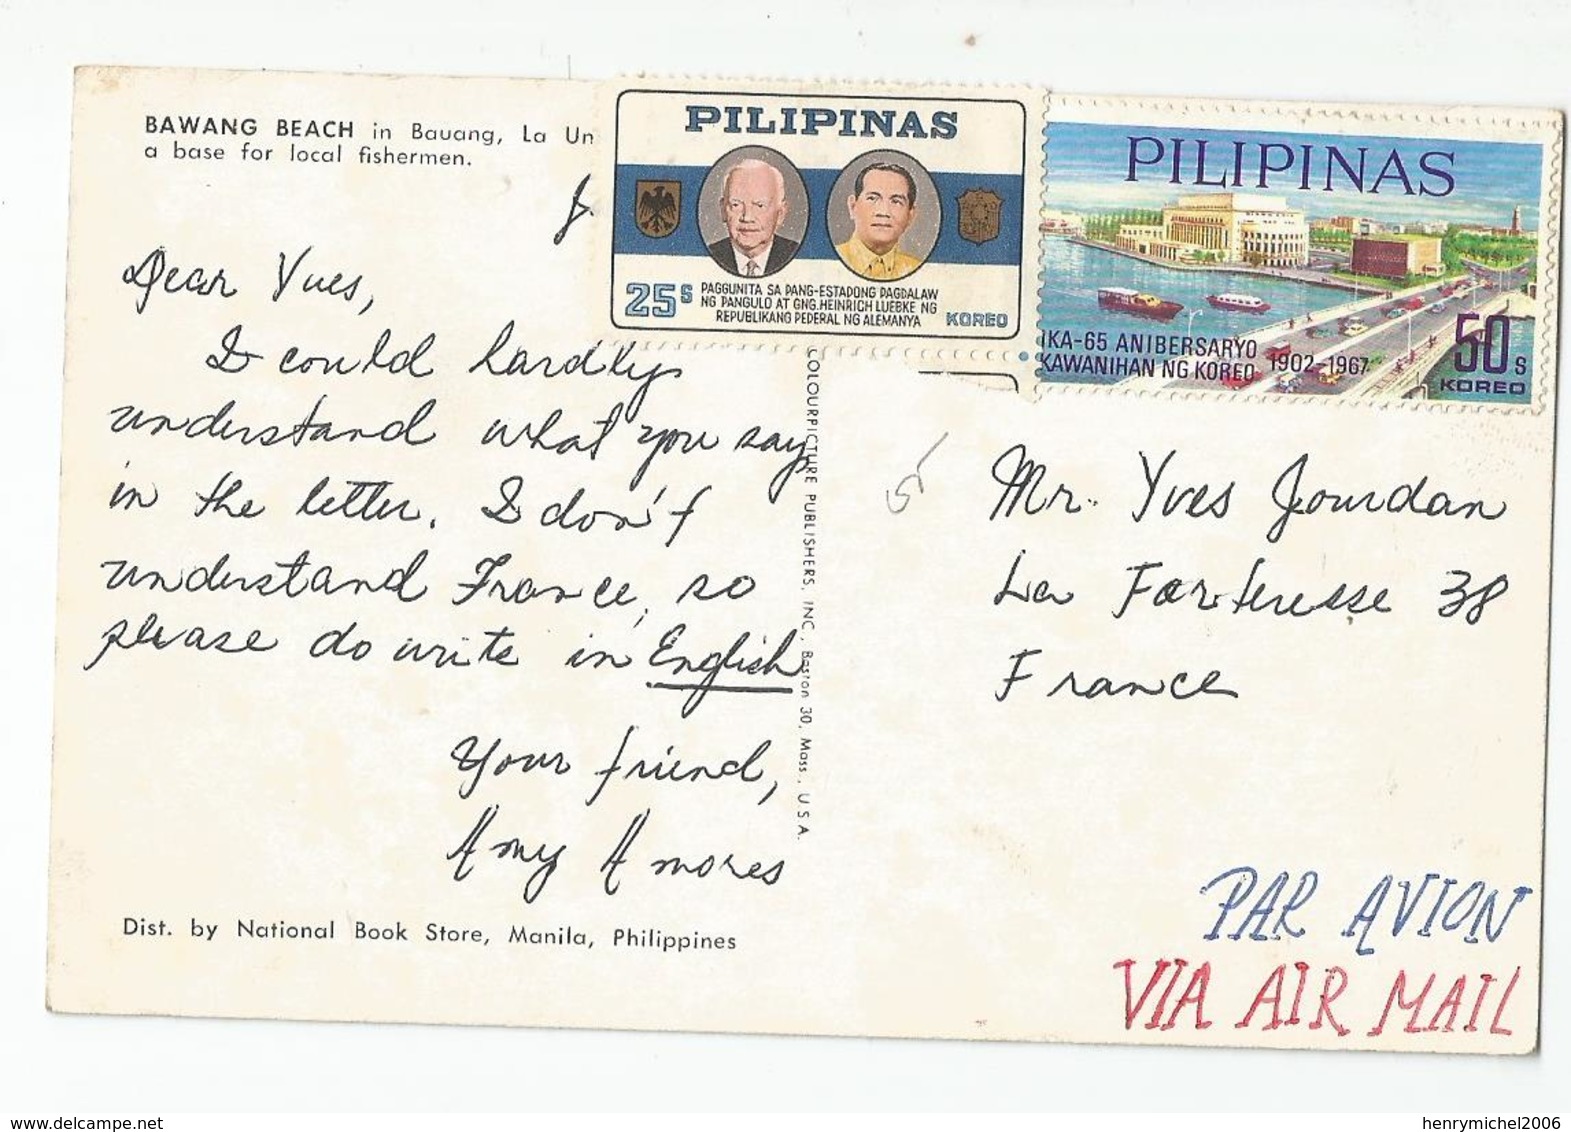 BAWANG BEACH in Bauang, La Un
a base for local fishermen.
Dear Yves,
I could hardly
understand what you say
in the letter. I don't
understand France, so
please do write in English
Your friend,
Amy Amores
Dist. by National Book Store, Manila, Philippines
COLOURPICTURE PUBLISHERS, INC., Boston 30, Mass., U.S.A.
PILIPINAS
25s
PAGGUNITA SA PANG-ESTADONG PAGDALAW
NG PANGULO AT GNG. HEINRICH LUEBKE NG
REPUBLIKANG PEDERAL NG ALEMANYA
KOREO
PILIPINAS
IKA-65 ANIBERSARYO
KAWANIHAN NG KOREO 1902-1967
50s
KOREO
Mr. Yves Jourdan
La Forteresse 38
France
PAR AVION
VIA AIR MAIL
www.delcampe.net
henrymichel2006